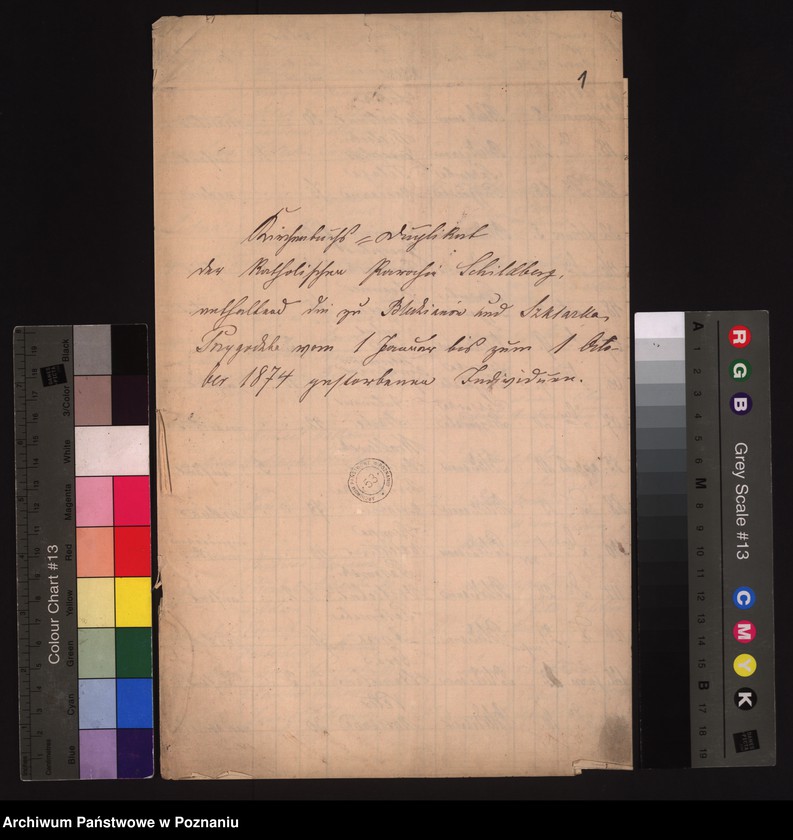 1
Kirchenbuchs = Duplikat
der Katholischen Parochie Schildberg,
enthaltend die zu Bledzianów und Szklarka
Przygodzka vom 1 Januar bis zum 1 Octo-
ber 1874 gestorbenen Individuen.
Colour Chart #13
Blue
Cyan
Green
Yellow
Red
Magenta
White
3/Color
Black
Centimetres
R
G
B
Grey Scale #13
C
M
Y
K
A
1
2
3
4
5
6
M
8
9
10
11
12
13
14
15
B
17
18
19
Archiwum Państwowe w Poznaniu